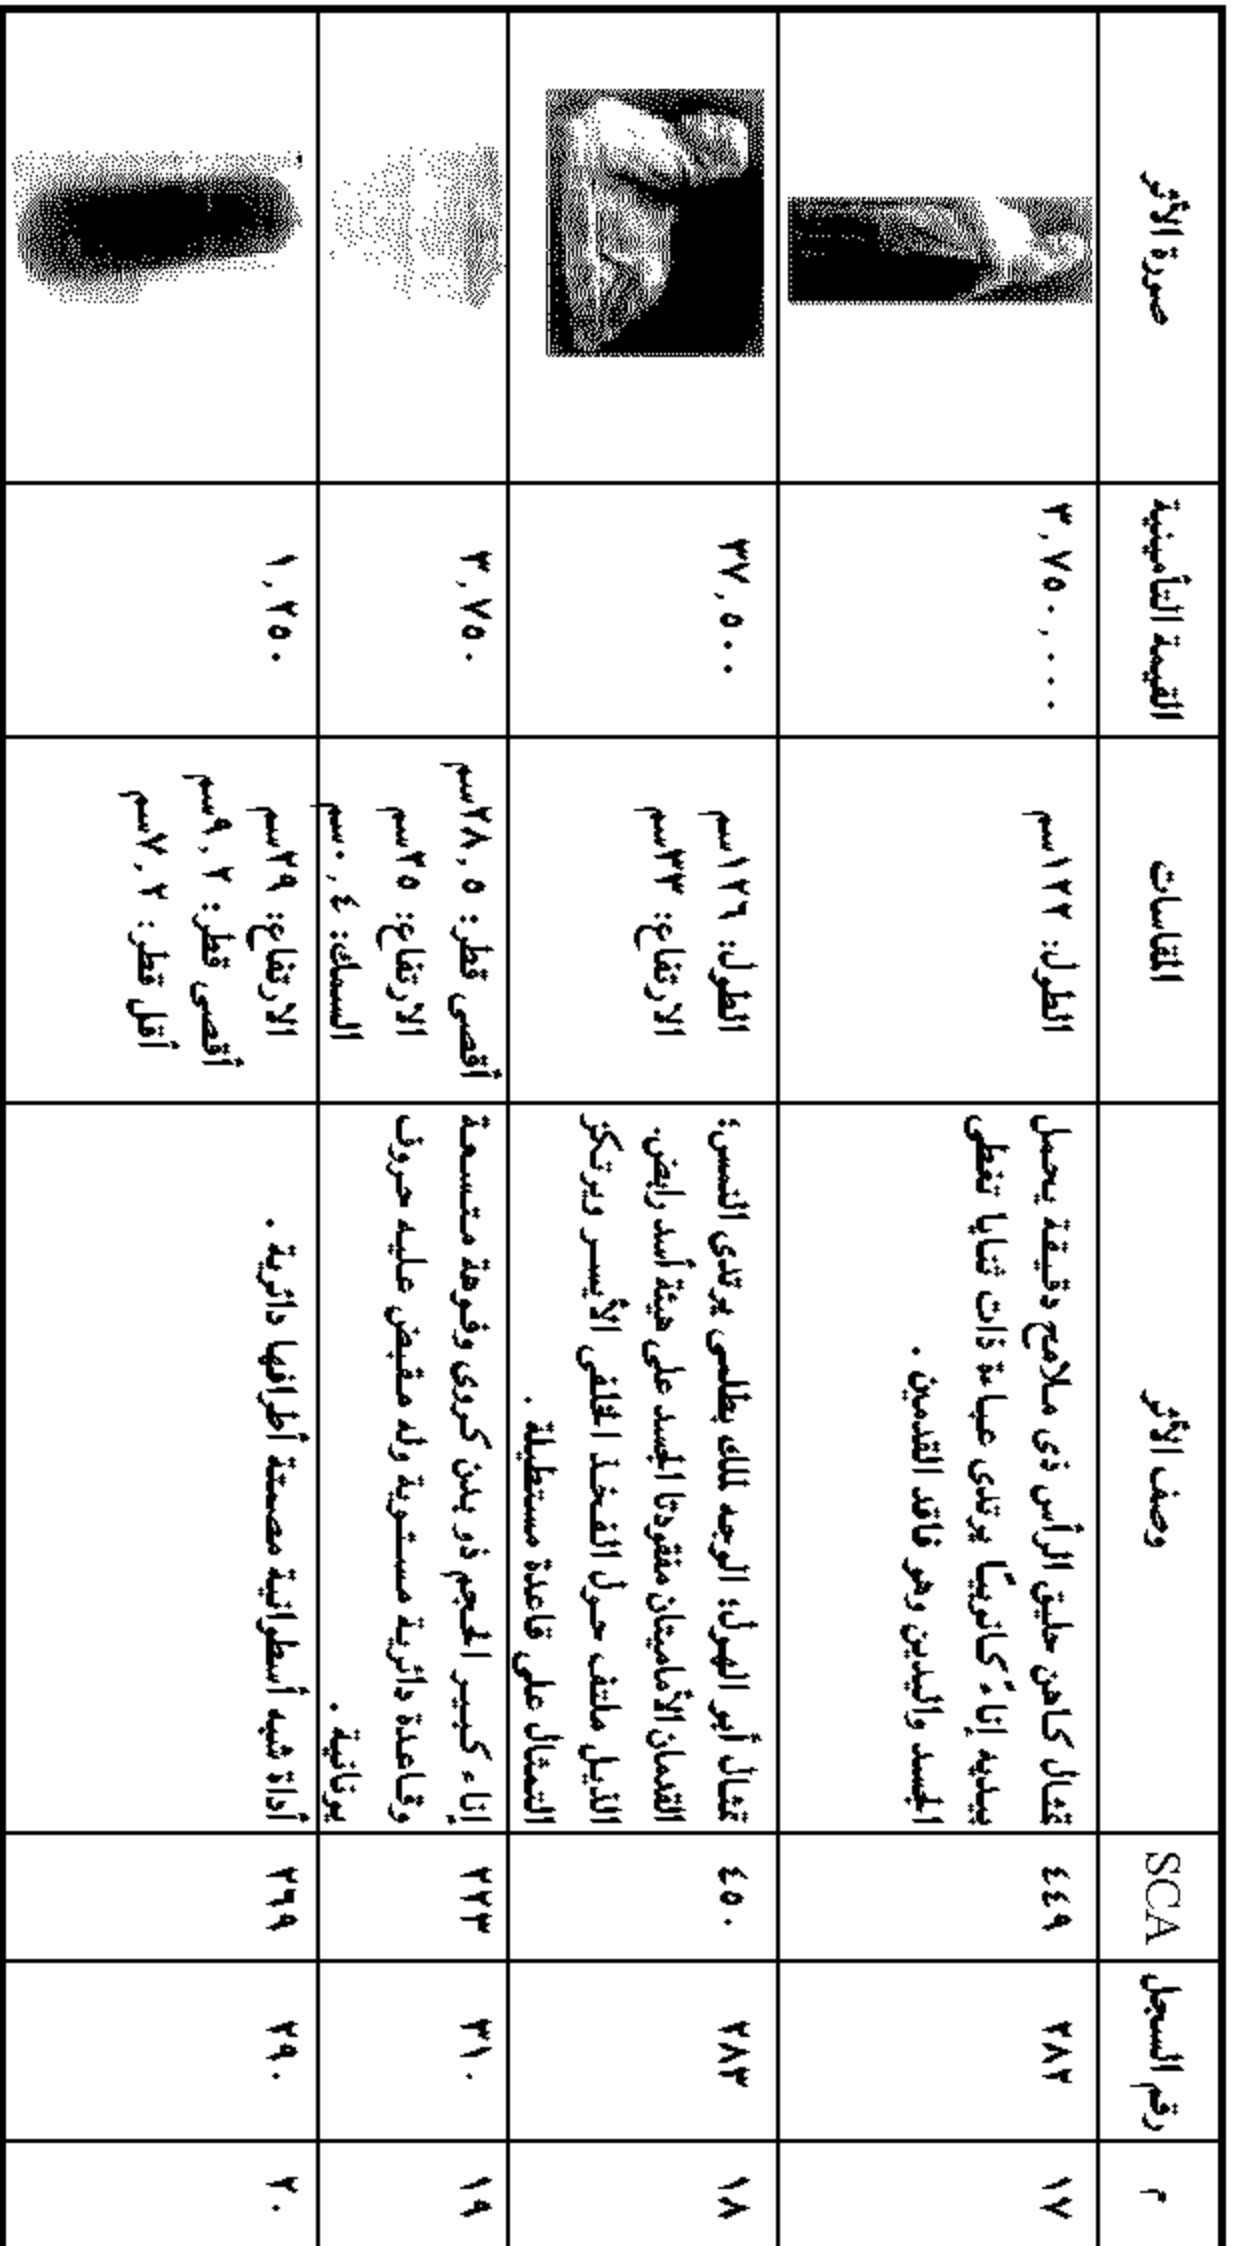 م
رقم السجل
SCA
وصف الأثر
المقاسات
القيمة التأمينية
صورة الأثر
١٧
٢٨٢
٤٤٩
تمثال كاهن حليق الرأس ذى ملامح دقيقة يحمل
بيديه إناءً كانوبيًا يرتدى عباءة ذات ثنايا تغطى
الجسد واليدين وهو فاقد القدمين .
الطول: ١٢٢سم
٣,٧٥٠,٠٠٠
١٨
٢٨٣
٤٥٠
تمثال أبو الهول؛ الوجه لملك بطلمى يرتدى النمس؛
القدمان الأماميتان مفقودتا الجسد على هيئة أسد رابض.
الذيل ملتف حول الفخذ الخلفى الأيسر ويرتكز
التمثال على قاعدة مستطيلة .
الطول: ١٢٦سم
الارتفاع: ٣٣سم
٣٧,٥٠٠
١٩
٣١٠
٢٢٣
إناء كبير الحجم ذو بدن كروى وفوهة متسعة
وقاعدة دائرية مستوية وله مقبض عليه حروف
يونانية .
أقصى قطر: ٢٨,٥سم
الارتفاع: ٣٥سم
السمك: ٠,٤سم
٣,٧٥٠
٢٠
٢٩٠
٢٦٩
أداة شبه أسطوانية مصمتة أطرافها دائرية .
الارتفاع: ٢٩سم
أقصى قطر: ٩,٢سم
أقل قطر: ٧,٢سم
١,٢٥٠